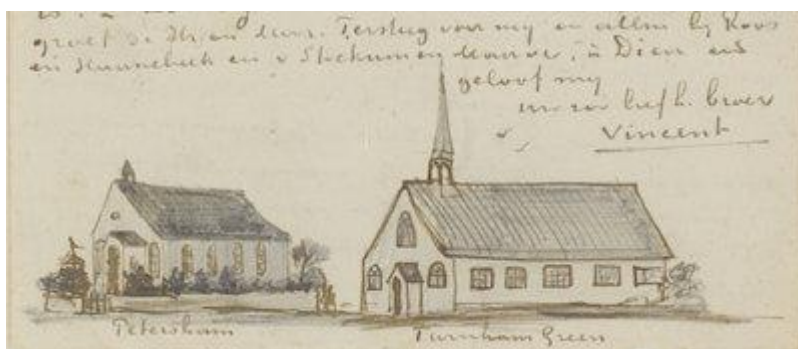 groet de Hr en Mevr. Tersteeg voor mij en allen bij Roos
en Haanebeek en v Stockum en Mauve, à Dieu en
geloof mij
uw zoo liefh. broer
Vincent
Petersham
Turnham Green